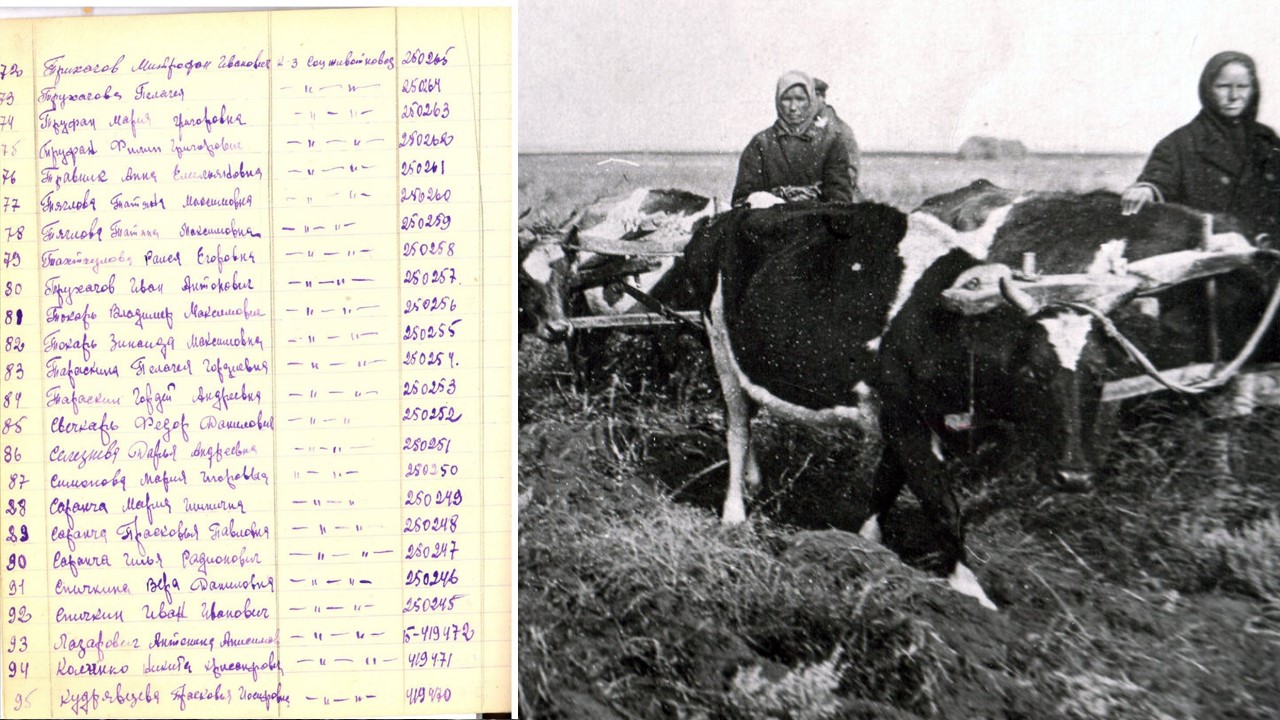 72 Трихачов Митрофан Иванович к-з Соцживотновод 250265
73 Трухачова Пелагея — " — " — 250264
74 Труфан Мария Григоровна — " — " — 250263
75 Труфан Филип Григорович — " — " — 250262
76 Травник Анна Емельяновна — " — " — 250261
77 Тяглова Татьяна Максимовна — " — " — 250260
78 Тяглова Татяна Максимовна — " — " — 250259
79 Раися Егоровна — " — " — 250258
80 Трухачов Иван Антонович — " — " — 250257.
81 Токарь Владимер Максимович — " — " — 250256
82 Токарь Зинаида Максимовна — " — " — 250255
83 Тараскина Пелагея Гордиевна — " — " — 250254.
84 Тараскин Гордей Андреевич — " — " — 250253
85 Свечкарь Федор Данилович — " — " — 250252
86 Селезнева Дарья Андреевна — " — " — 250251
87 Симонова Мария Игоровна — " — " — 250250
88 Саранча Мария — " — " — 250249
89 Саранча Прасковья Павловна — " — " — 250248
90 Саранча Илья Радионович — " — " — 250247
91 Спичкина Вера Даниловна — " — " — 250246
92 Спичкин Иван Иванович — " — " — 250245
93 Лазарович Антонина — " — " — 419472
94 Никита — " — " — 419471
95 Кудрявцева Прасковья — " — " — 419470